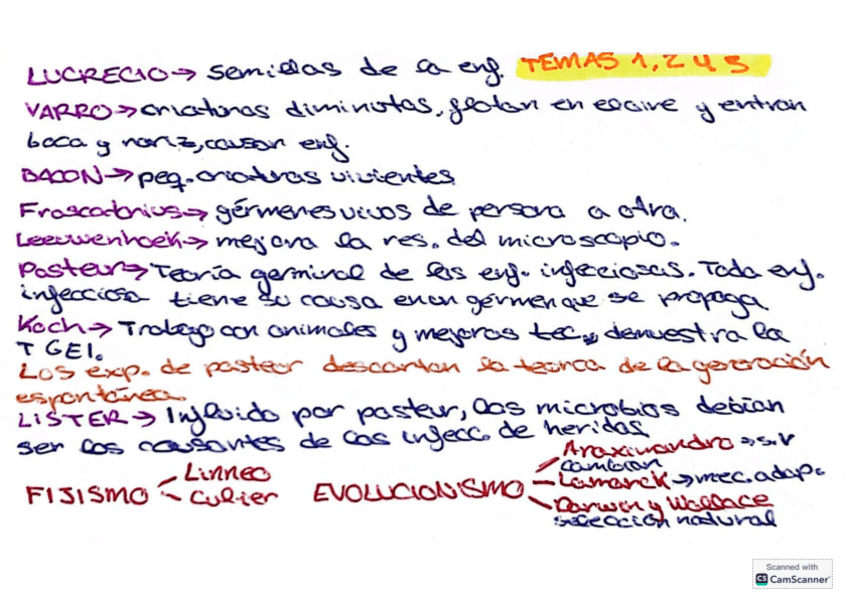 LUCRECIO → semillas de la enf. TEMAS 1, 2 y 3
VARRO → criaturas diminutas, flotan en el aire y entran
boca y nariz, causan enf.
BACON → peq. criaturas vivientes
Frascatorius → gérmenes vivos de persona a otra.
Leeuwenhoek → mejora la res. del microscopio.
Pasteur → Teoría germinal de las enf. infecciosas. Toda enf.
infecciosa tiene su causa en un germen que se propaga
Koch → Trabajo con animales y mejoras tec., demuestra la
T GEI.
Los exp. de pasteur descartan la teoria de la generación
espontánea.
LISTER → Influido por pasteur, los microbios debían
ser los causantes de las infecc. de heridas
FIJISMO Linneo
Cuvier
EVOLUCIONISMO Anaximandro → s.V
cambian
Lamarck → mec. adap.
Darwin y Wallace
selección natural
Scanned with
CS CamScanner